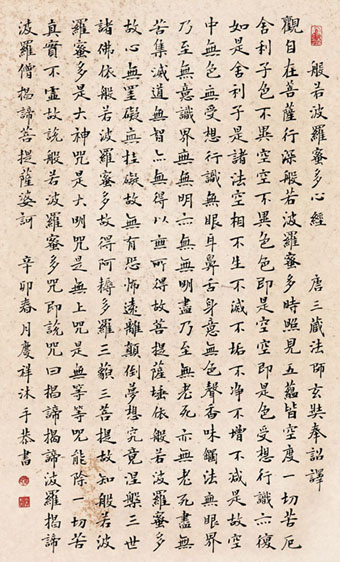 般若波羅蜜多心經 唐三藏法師玄奘奉詔譯
觀自在菩薩行深般若波羅蜜多時照見五蘊皆空度一切苦厄
舍利子色不異空空不異色色即是空空即是色受想行識亦復
如是舍利子是諸法空相不生不滅不垢不淨不增不減是故空
中無色無受想行識無眼耳鼻舌身意無色聲香味觸法無眼界
乃至無意識界無無明亦無無明盡乃至無老死亦無老死盡無
苦集滅道無智亦無得以無所得故菩提薩埵依般若波羅蜜多
故心無罣礙無挂礙故無有恐怖遠離顛倒夢想究竟涅槃三世
諸佛依般若波羅蜜多故得阿耨多羅三藐三菩提故知般若波
羅蜜多是大神咒是大明咒是無上咒是無等等咒能除一切苦
真實不虛故說般若波羅蜜多咒即說咒曰揭諦揭諦波羅揭諦
波羅僧揭諦菩提薩婆訶 辛卯春月慶祥沐手恭書